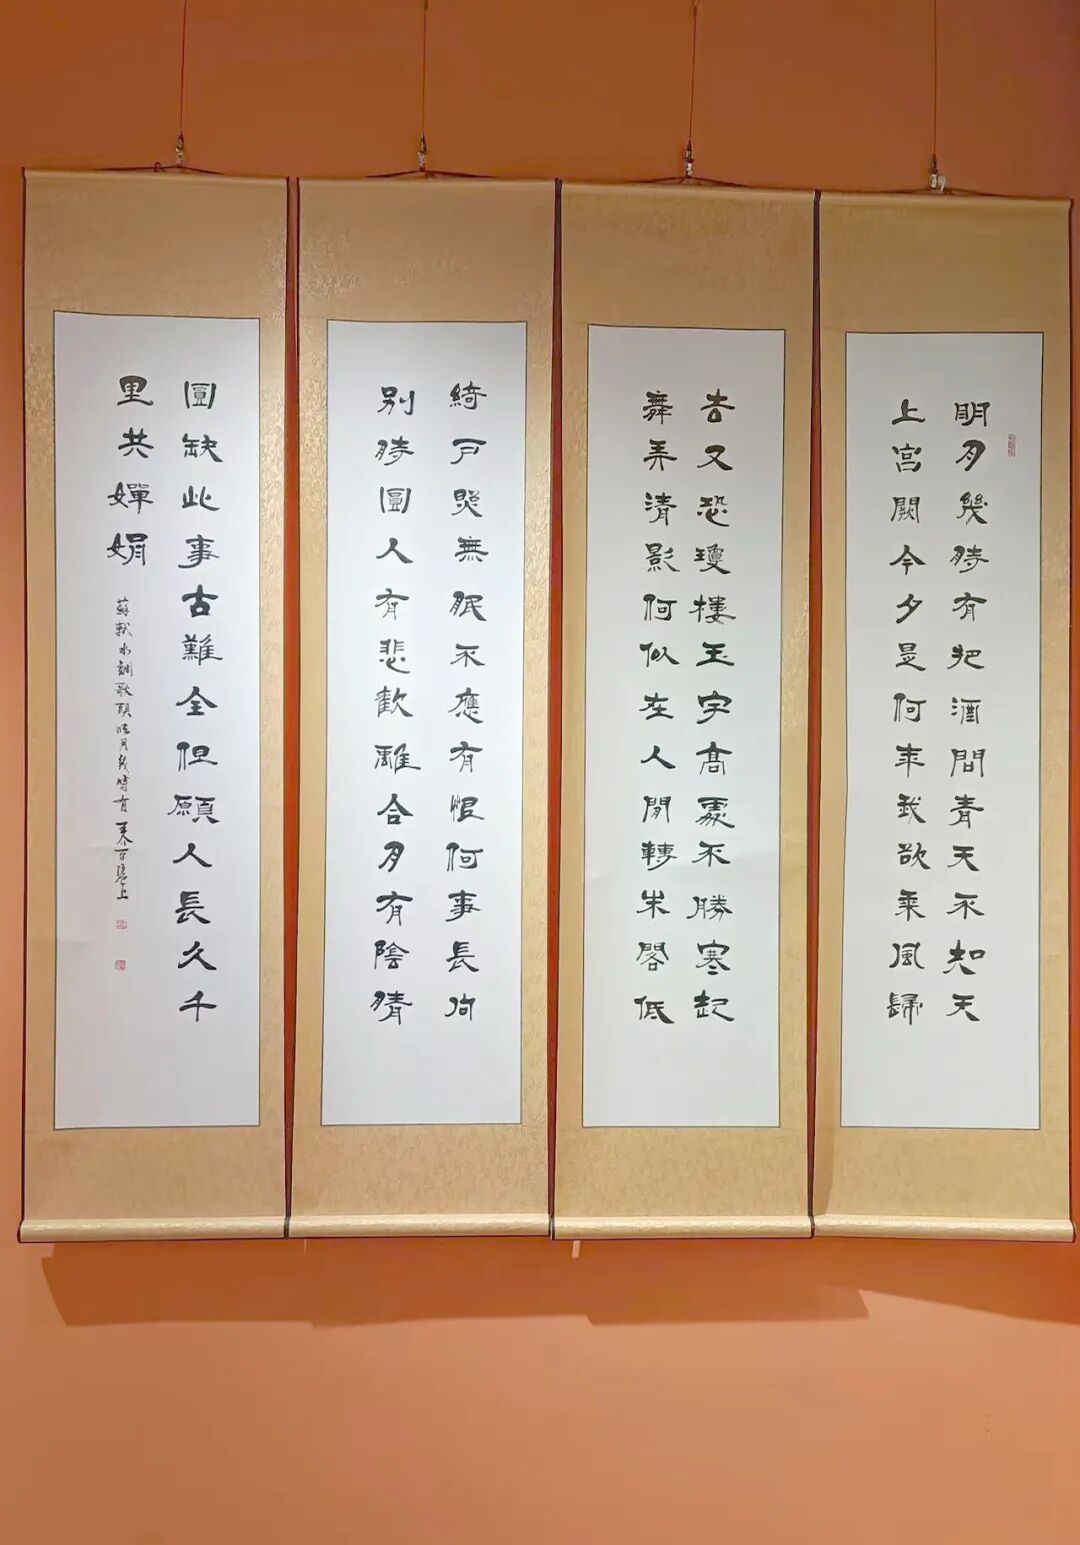 明月幾時有把酒問青天不知天
上宮闕今夕是何年我欲乘風歸
去又恐瓊樓玉宇高處不勝寒起
舞弄清影何似在人間轉朱閣低
綺戶照無眠不應有恨何事長向
別時圓人有悲歡離合月有陰晴
圓缺此事古難全但願人長久千
里共嬋娟
蘇軾水調歌頭明月幾時有